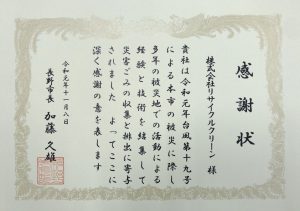 感謝状
株式会社リサイクルクリーン 様
貴社は令和元年台風第十九号
による本市の被災に際し
多年の被災地での活動による
経験と技術を結集して
災害ごみの収集と排出に寄与
されました よってここに
深く感謝の意を表します
令和元年十一月八日
長野市長 加藤久雄